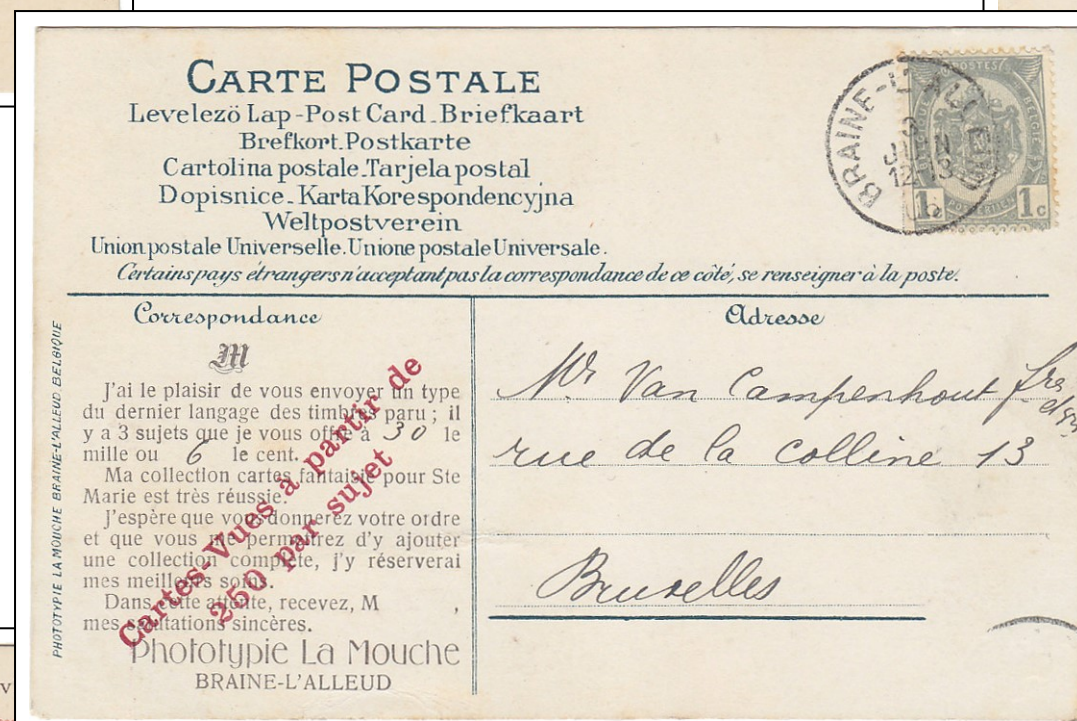 CARTE POSTALE
Levelezö Lap-Post Card-Briefkaart
Brefkort.Postkarte
Cartolina postale.Tarjela postal
Dopisnice-Karta Korespondencyjna
Weltpostverein
Union postale Universelle.Unione postale Universale.
Certains pays étrangers n'acceptant pas la correspondance de ce côté, se renseigner à la poste.
POSTES
BRAINE-L'ALLEUD
JUIN
1c 1c
Correspondance
M
J'ai le plaisir de vous envoyer un type
du dernier langage des timbres paru ; il
y a 3 sujets que je vous offre à 30 le
mille ou 6 le cent.
Ma collection cartes fantaisie pour Ste
Marie est très réussie.
J'espère que vous donnerez votre ordre
et que vous me permettrez d'y ajouter
une collection complète, j'y réserverai
mes meilleurs soins.
Dans cette attente, recevez, M ,
mes salutations sincères.
Phototypie La Mouche
BRAINE-L'ALLEUD
Cartes-Vues à partir de
250 par sujet
PHOTOTYPIE LA MOUCHE BRAINE-L'ALLEUD BELGIQUE
Adresse
Mr Van Campenhout frs
rue de la Colline 13
Bruxelles
v